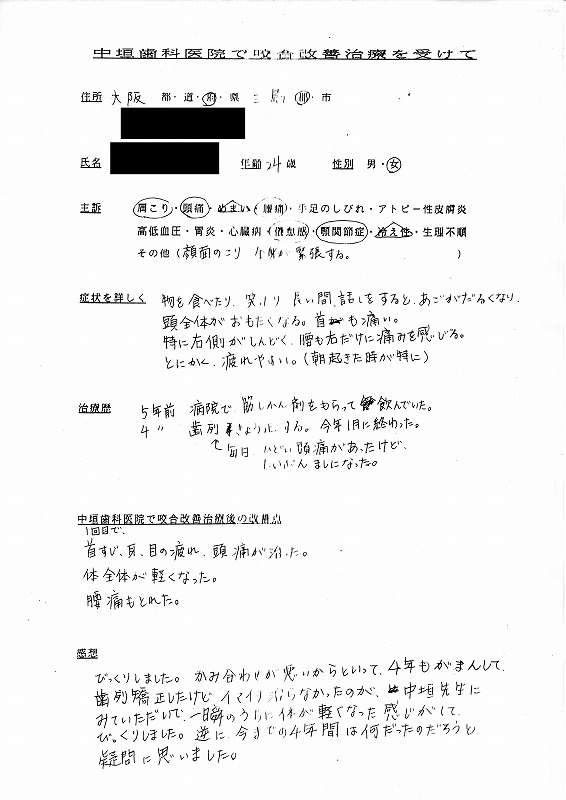 中垣歯科医院で咬合改善治療を受けて
住所 大阪 都・道・府・県 三島 郡・市
氏名 年齢 24 歳 性別 男・女
主訴 肩こり・頭痛・めまい・腰痛・手足のしびれ・アトピー性皮膚炎
高低血圧・胃炎・心臓病・倦怠感・顎関節症・冷え性・生理不順
その他（顔面のこり 全身が緊張する。）
症状を詳しく 物を食べたり、笑ったり 長い間、話しをすると、あごがだるくなり、
頭全体がおもたくなる。首も痛い。
特に右側がしんどく、腰も右だけに痛みを感じる。
とにかく、疲れやすい。（朝起きた時が特に）
治療歴 5年前 病院で、筋しかん剤をもらって飲んでいた。
4 〃 歯列きょう正する。今年1月に終わった。
毎日、ひどい頭痛があったけど、
いぶん ましになった。
中垣歯科医院で咬合改善治療後の改善点
1回目で、
首すじ、肩、目の疲れ、頭痛が治った。
体全体が軽くなった。
腰痛もとれた。
感想
びっくりしました。かみ合わせが悪いからといって、4年もがまんして、
歯列矯正したけど、イマイチ治らなかったのが、中垣先生に
みていただいて、一瞬のうちに体が軽くなった感じがして、
びっくりしました。逆に、今までの4年間は何だったのだろうと
疑問に思いました。